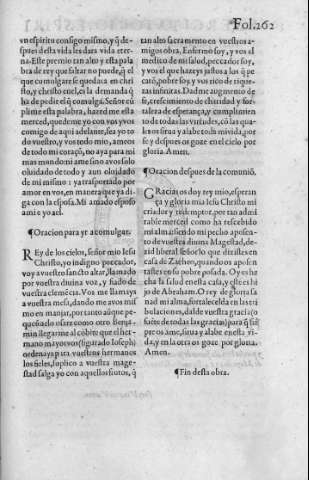 Fol.262
vn espiritu consigo mismo, y q̃ de-
spues desta vida les dara vida eter-
na. Este premio tan alto y esta pala
bra de rey que faltar no puede, q̃ el
que comulgare se quedara en chri
sto, y christo en el, es la demanda q̃
ha de pedir el q̃ comulga. Señor cũ
plime esta palabra, hazed me esta
merced, que de me yo con vos y vos
comigo de aqui adelante, sea yo to
do vuestro, y vos todo mio, ame os
de todo mi coraçõ, no aya para mi
mas mundo ni ame sino a vos solo
oluidado de todo y aun oluidado
de mi mismo: y trasportado por
amor en vos, en manera que ya di-
ga con la esposa. Mi amado esposo
a mi e yo a el.
¶Oracion para yr a comulgar.
REy de los cielos, señor mio Iesu
Christo, yo indigno peccador,
voy a vuestro sancto altar, llamado
por vuestra diuina voz, y fiado de
vuestra clemẽcia. Vos me llamays
a vuestra mesa, dando me a vos mis
mo en manjar, por tanto aũque pe-
queño a lo osare como otro Benja-
min llegarme al cõbite que el her-
mano mayor vos (figurado Ioseph)
ordenays para vuestros hermanos
los fieles, suplico a vuestra mage-
stad salga yo con aquellos frutos, q̃
tan alto sacramento en vuestros a-
migos obra. Enfermo soy, y vos al
medico de mi salud, peccador soy,
y vos el que hazeys justos a los q̃ pe
carõ, pobre soy, y vos el de rique-
zas infinitas. Dad me augmento de
fe, crescimiento de charidad y for-
taleza de esperãça, y cumplimien
to de todas las virtudes, cõ las qua-
les os sirua y alabe toda mi vida, por
ser y despues os goze en el cielo por
gloria. Amen.
¶Oracion despues de la comuniõ.
GRacias os doy rey mio, esperan
ça y gloria mia Iesu Christo mi
criador y redemptor, por tan admi
rable merced como ha rescebido
mi alma, siendo mi pecho aposen-
to de vuestra diuina Magestad, de-
zid liberal señor lo que dixistes en
casa de Zacheo, quando os aposen
tastes en su pobre posada. Oy es he
cha la salud en esta casa, y este es hi
jo de Abraham. O rey de gloria sa
nad mi alma, fortalescelda en las tri
bulaciones, dalde vuestra gracia (o
fuẽte de todas las gracias) para q̃ siẽ
pre os ame, sirua y alabe en esta vi-
da, y en la otra os goze por gloria.
Amen.
¶Fin desta obra.